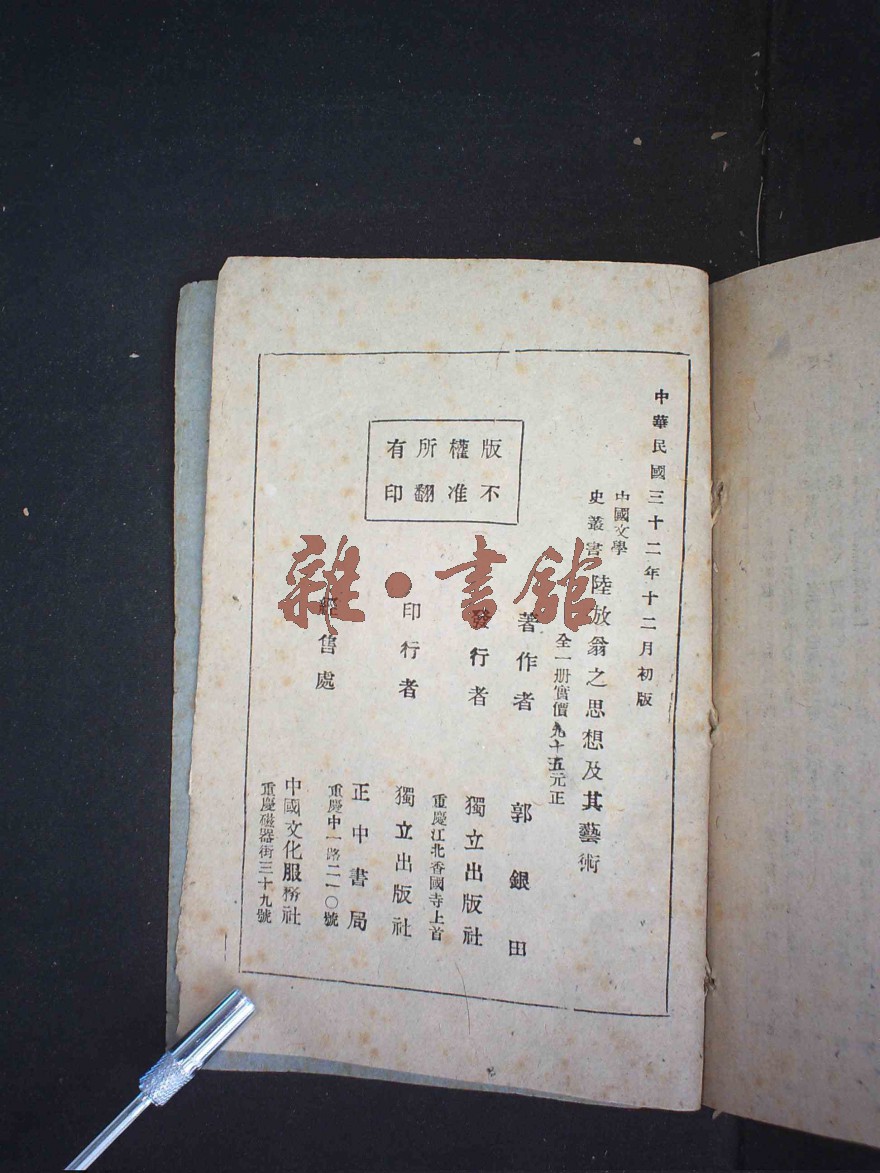 中華民國三十二年十二月初版
中國文學
史叢書
陸放翁之思想及其藝術
全一册實價九十五元正
著作者 郭銀田
發行者 獨立出版社
重慶江北香國寺上首
印行者 獨立出版社
經售處
正中書局
重慶中一路二一〇號
中國文化服務社
重慶磁器街三十九號
版權所有
不准翻印
雜·書館